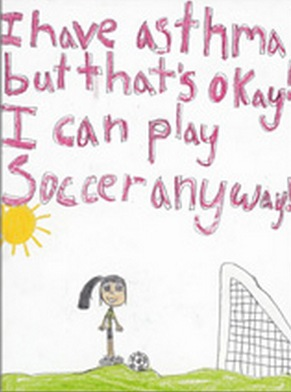 I have asthma
but that's okay!
I can play
Soccer anyway!